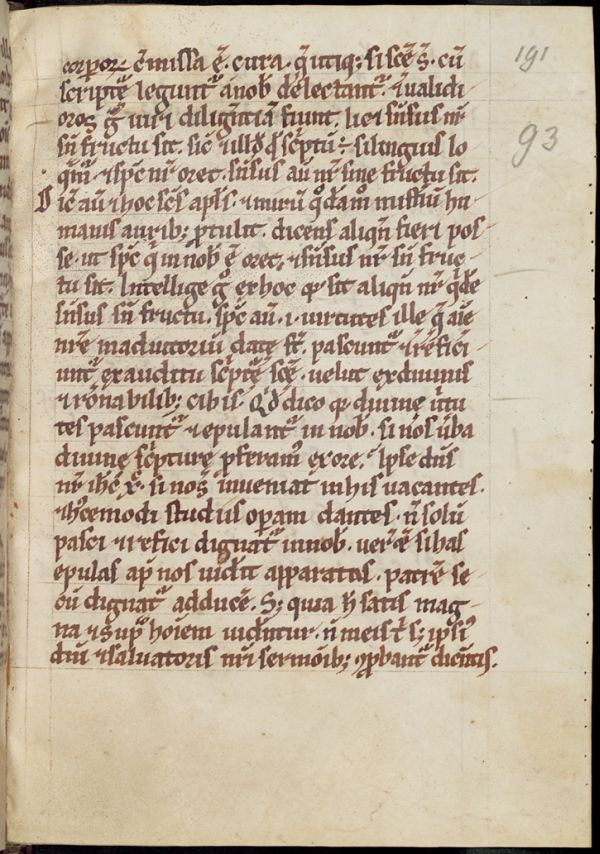 191
93
corpor⁊ ē missa ē. cura. q̄ utiq; si scē s̄. cū
scriptę leguntᷣ a nob̄ delectantᷣ. ⁊ ualidi
ores ḡ uiri diligentiā fiunt. licet sensus nr̄
sn̄ fructu sit. sic̄ ⁊ illd̄ qd̄ sc̄ptū ÷. si linguis lo
qm̄ᷣ ⁊ spc̄ nr̄ oret. sensus aū nr̄ sine fructu sit.
Sic̄ aū ⁊ hoc scs̄ apl̄s. ⁊ mirū qᵒdam mᵒ n̄r̄ᵘ hu
manis aurib; ꝓtulit. dicens aliqn̄ fieri pos
se. ut spc̄ qᷣ in nob̄ ē oret. ⁊ sensus nr̄ sn̄ fruc
tu sit. Intellige gᵒ ex hoc qꝫ sit aliqn̄ nr̄ qᷣde
sensus sn̄ fructu. spc̄ aū. i. uirtutes ille q̄ aīe
nr̄e in adiutoriū datę st̄. pascuntᷣ ⁊ refici
untᷣ ex auditu sc̄ptę scē. uelut ex diuinis
⁊ rōnabilib; cibis. Qd̄ dico qꝫ diuinę uirtu
tes pascuntᷣ ⁊ epulantᷣ in nob̄. si nos uerba
diuinę sc̄pturę ꝓferamᷣ ex ore. Ipse dn̄s
nr̄ ih̄c x̄. si nos inueniat in his uacantes.
⁊ hᷣcemodi studiis opam dantes. n̄ solū
pasci ⁊ refici dignatᷣ in nob̄. uer̄ ē si has
epulas ap̄ nos uidit apparatas. patrē se
cū dignatᷣ adducē. S; quia h̄ satis mag
na ⁊ supᷓ hoīem uidentur. n̄ meis t̄ s; ipsiᷣ
dn̄i ⁊ saluatoris nr̄i sermōib; ꝓbantᷣ dicentis.